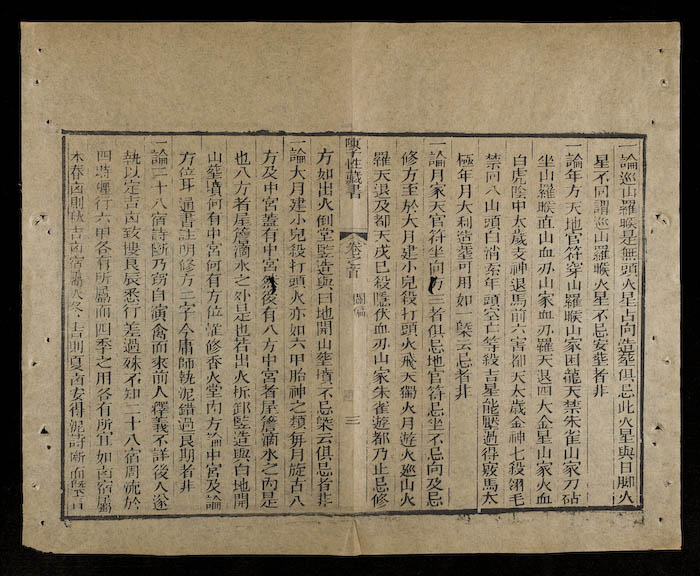 一論巡山羅睺是無頭火星占向造葬俱忌此火星與日腳火
星不同謂巡山羅睺火星不忌安葬者非
一論年方天地官符穿山羅睺山家困龍天禁朱雀山家刀砧
坐山羅睺直山血刃山家血刃羅天退四大金星山家火血
白虎陰中太歲支神退馬前六害都天太歲金神七殺翎毛
禁向八山頭白消索年頭空亡等殺吉星能壓過得竅馬太
極年月大利造葬可用如一槩云忌者非
一論月家天官符坐向方三者俱忌地官符忌坐不忌向及忌
修方至於大月建小兒殺打頭火飛天獨火月遊火巡山火
羅天退及都天戊己殺隱伏血刃山家朱雀遊都乃止忌修
卷之首
三
方如出火倒堂豎造與白地開山葬墳不忌槩云俱忌者非
一論大月建小兒殺打頭火亦如六甲胎神之類每月旋占八
方及中宮蓋有中宮然後有八方中宮者屋簷滴水之內是
也八方者屋簷滴水之外是也若出火拆卸豎造與白地開
山葬墳何有中宮何有方位惟修香火堂內方論中宮及論
方位耳通書註明修方二字今庸師執泥錯過良期者非
一論二十八宿詩斷乃竊自演禽而來前人釋義不詳後人遂
執以定吉凶致使良辰悉行差過殊不知二十八宿周流於
四時經行六甲各有所屬而四季之用各有所宜如凶宿屬
木春凶則秋吉凶宿屬火冬吉則夏凶安得泥詩斷而槩言